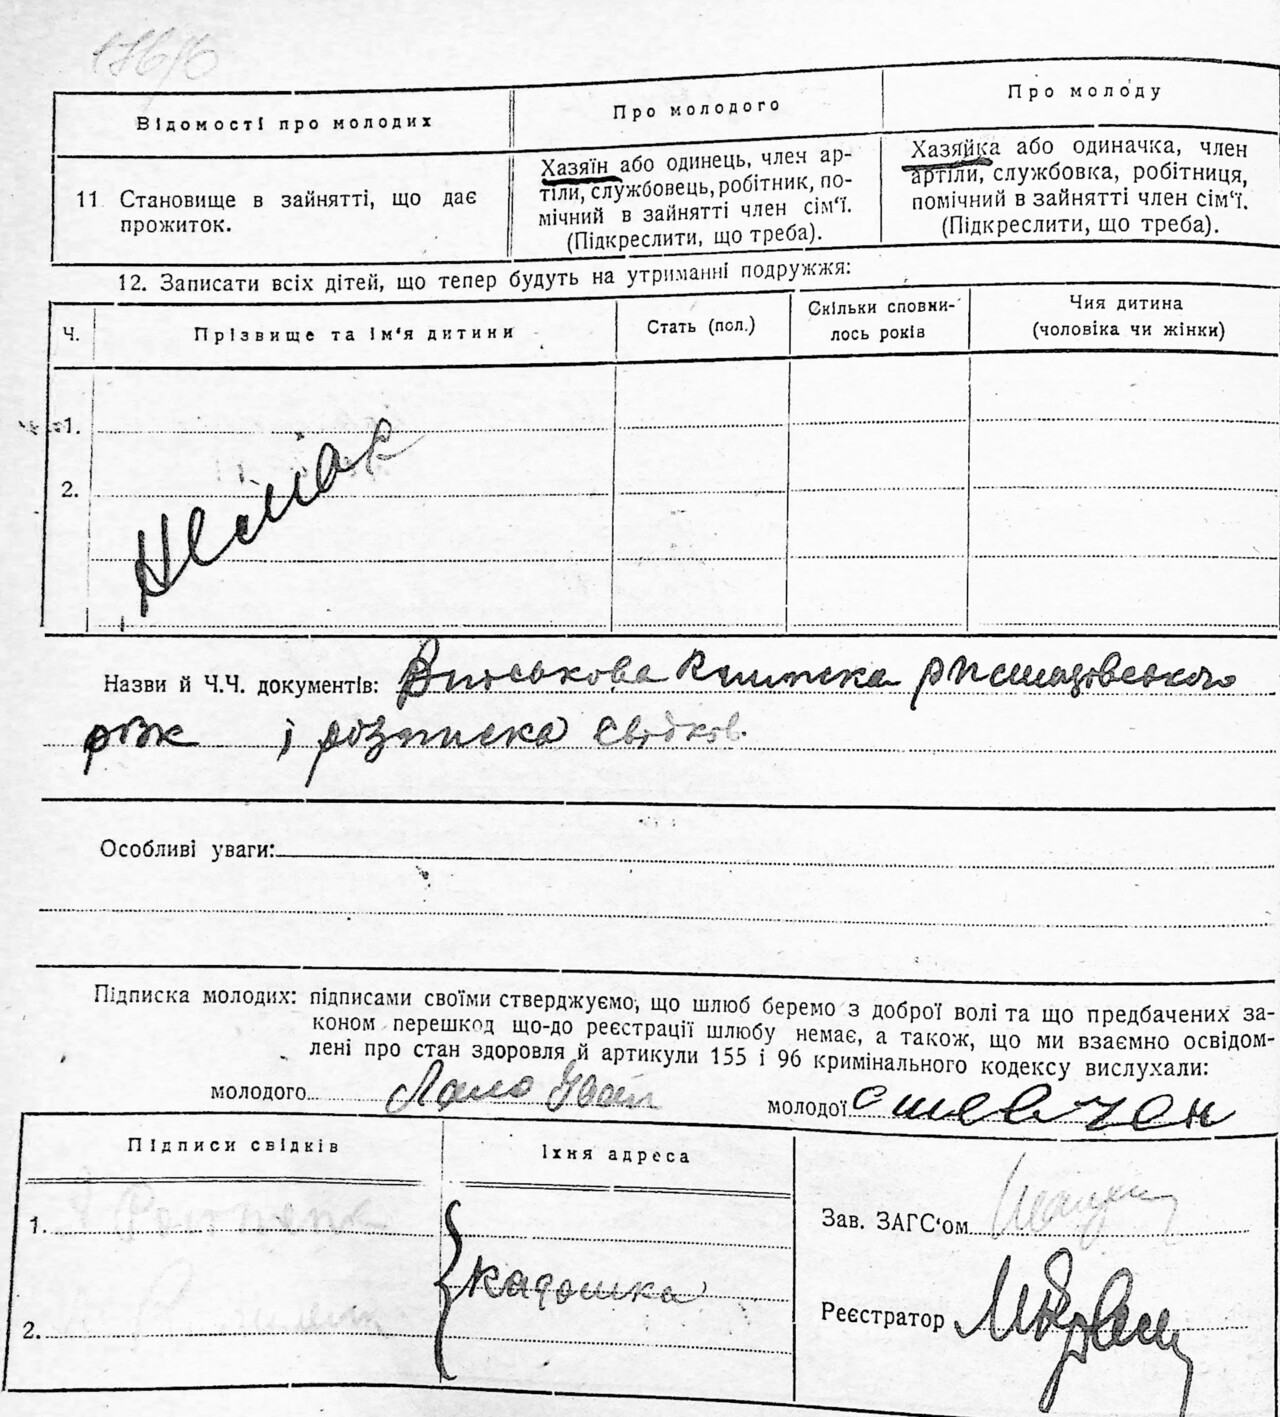 Відомості про молодих
Про молодого
Про молоду
11 Становище в зайнятті, що дає
прожиток.
Хазяїн або одинець, член ар-
тіли, службовець, робітник, по-
мічний в зайнятті член сім'ї.
(Підкреслити, що треба).
Хазяйка або одиначка, член
артіли, службовка, робітниця,
помічний в зайнятті член сім'ї.
(Підкреслити, що треба).
12. Записати всіх дітей, що тепер будуть на утриманні подружжя:
Ч.
Прізвище та ім'я дитини
Стать (пол.)
Скільки сповни-
лось років
Чия дитина
(чоловіка чи жінки)
1.
2.
Назви й Ч.Ч. документів: Військова
і розписка свідков.
Особливі уваги:
Підписка молодих: підписами своїми стверджуємо, що шлюб беремо з доброї волі та що предбачених за-
коном перешкод що-до реєстрації шлюбу немає, а також, що ми взаємно освідом-
лені про стан здоровля й артикули 155 і 96 кримінального кодексу вислухали:
молодого
молодої
Підписи свідків
Їхня адреса
1.
2.
Кадошка
Зав. ЗАГС'ом
Реєстратор